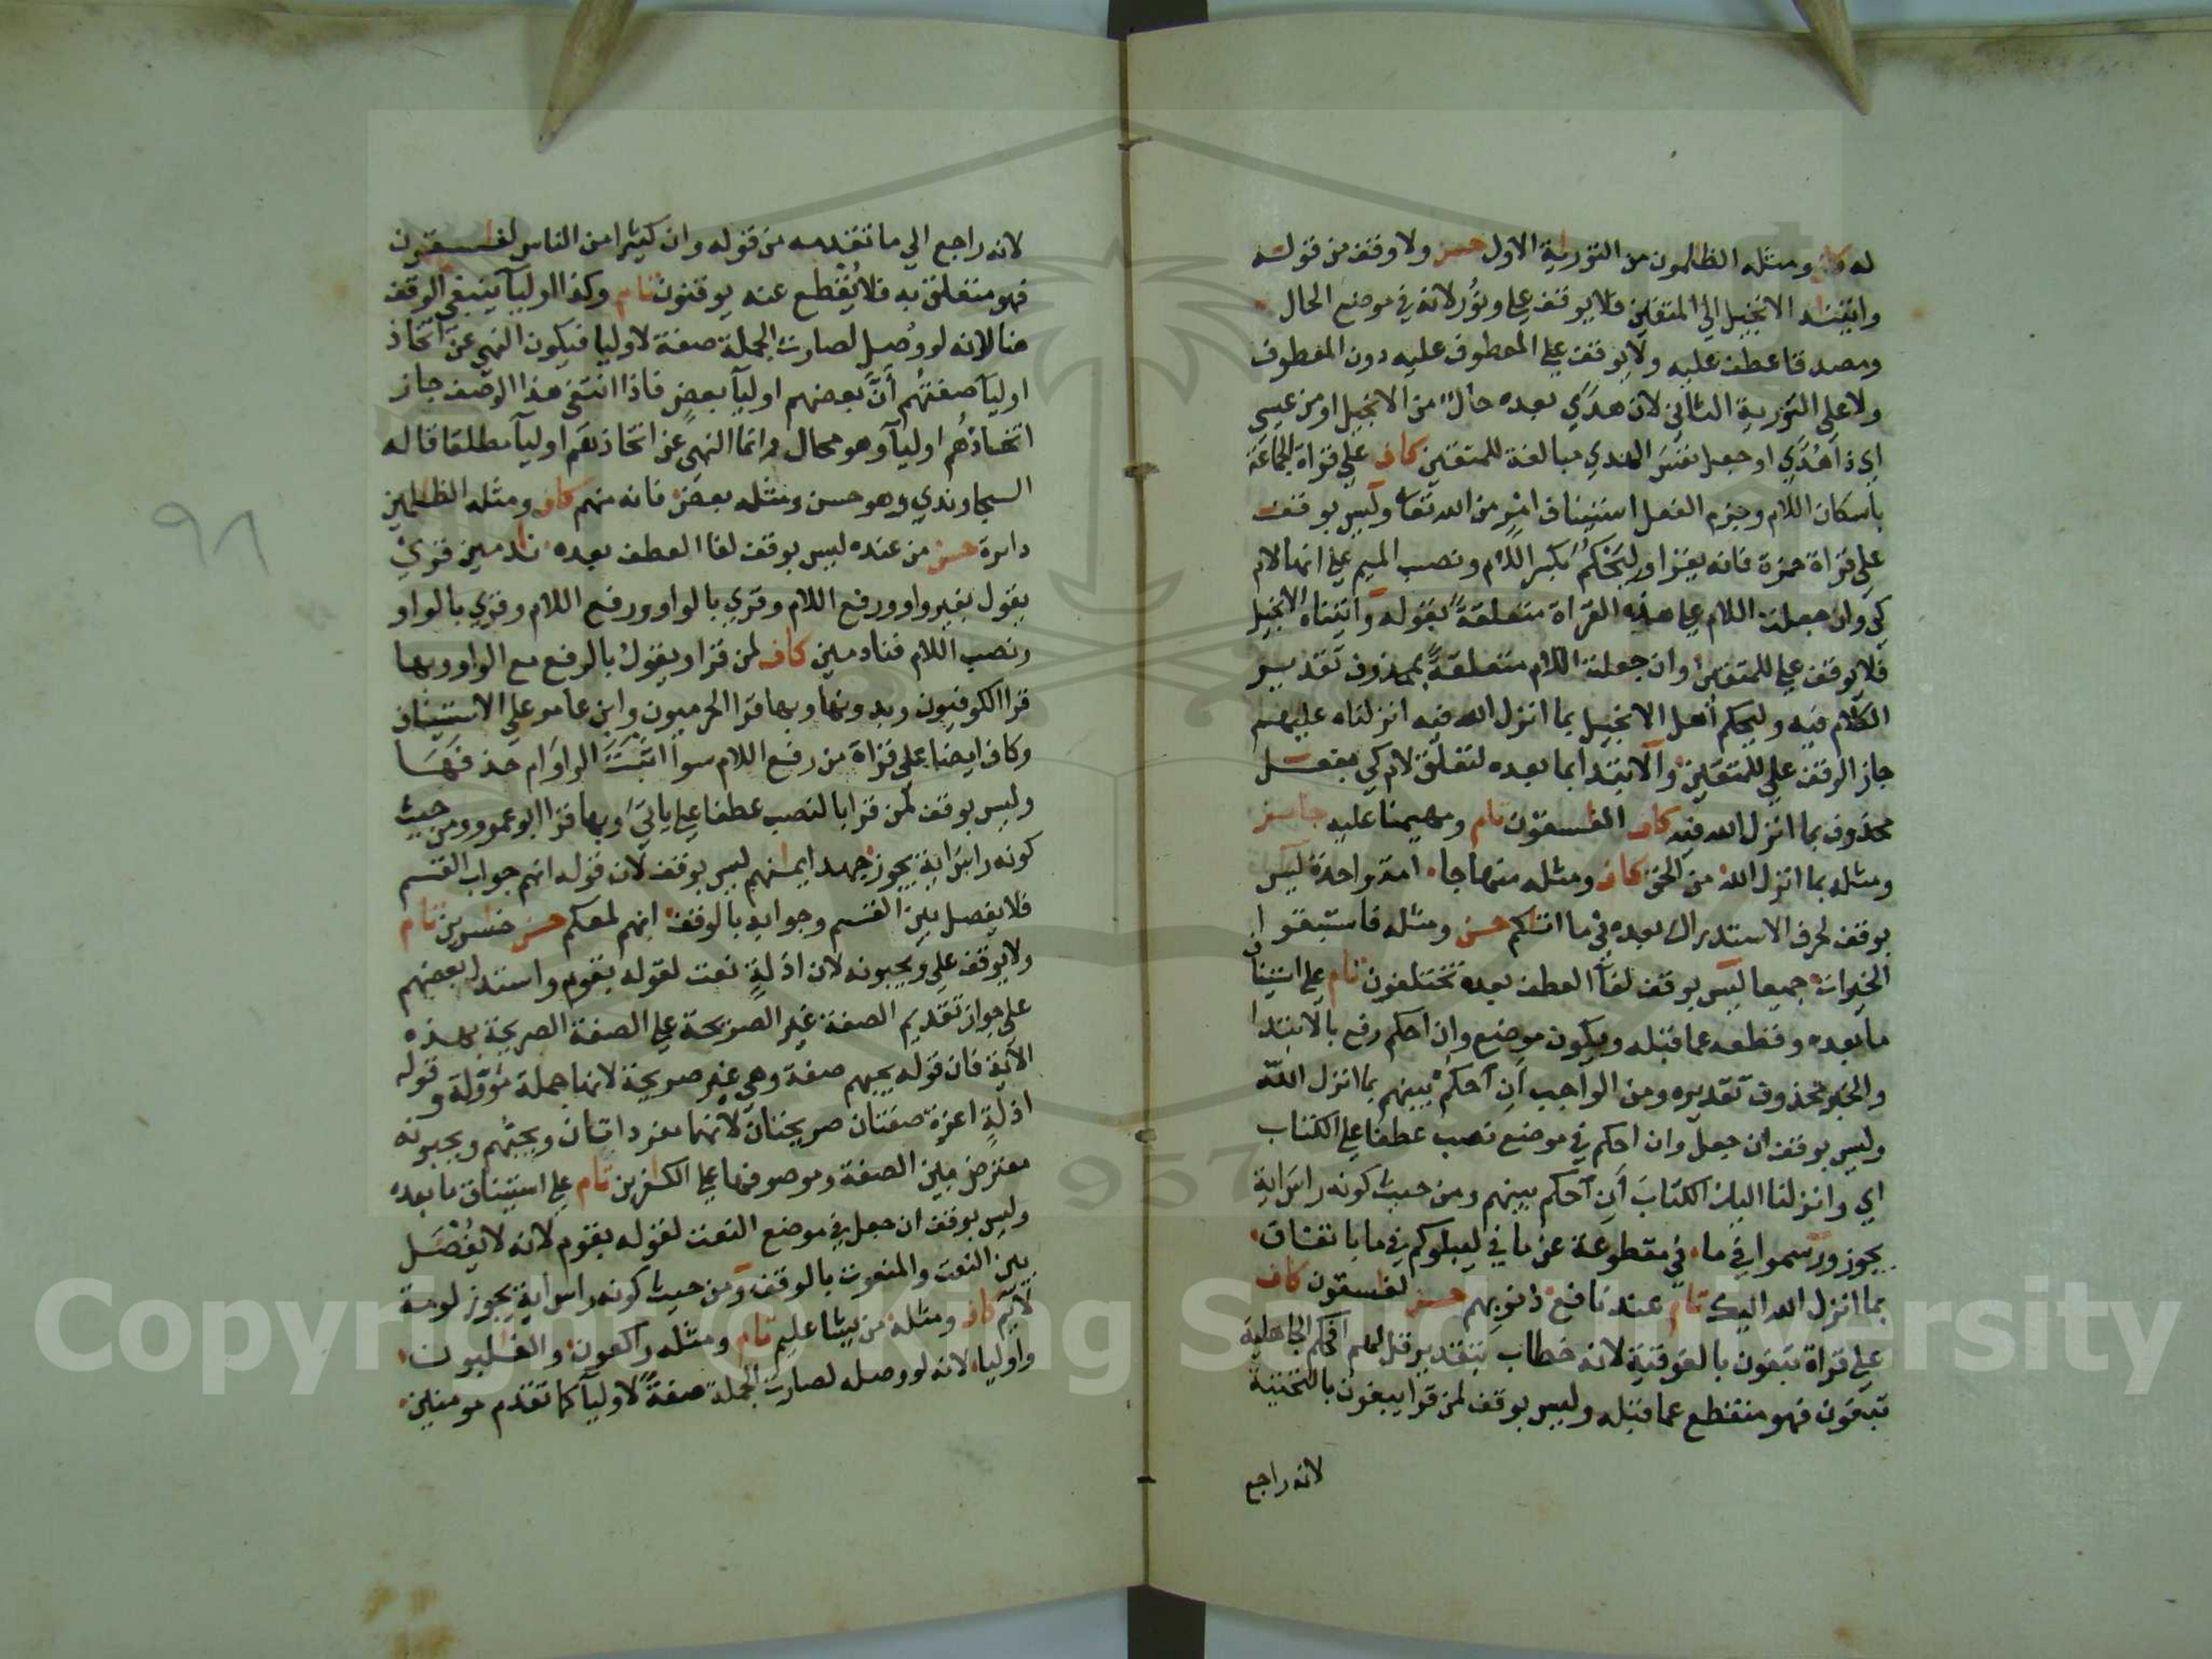 له كاف ومثله الظلمون من التورية الاول حسن ولا وقف من قوله
واتينه الانجيل الي المتقين فلا يوقف علي ونور لانه في موضع الحال
ومصدقا عطف عليه ولا يوقف علي المعطوف عليه دون المعطوف
ولا على التورية الثاني لان هدي بعده حال من الانجيل او من عيسي
اي ذا هدي او جعل نفس الهدي مبالغة للمتقين كاف علي قراة الجماعة
باسكان اللام وجزم الفعل استيناف امر من الله تعا وليس بوقف
على قراة حمزة فانه يقرا وليحكم بكسر اللام ونصب الميم علي انها لام
كي وان جعلت اللام علي هذه القراة متعلقة بقوله واتيناه الانجيل
فلا يوقف علي للمتقين وان جعلت اللام متعلقة بمحذوف تقدير
الكلام فيه وليحكم أهل الانجيل بما انزل الله فيه انزلناه عليهم
جاز الوقف علي للمتقين والابتدا بما بعده لتعلق لام كي بفعل
محذوف بما انزل الله فيه كاف الفسقون تام ومهيمنا عليه جائز
ومثله بما انزل الله من الحق كاف ومثله منهاجا امة واحدة ليس
بوقف لحرف الاستدراك بعده في ما اتكم حسن ومثله فاستبقوا
الخيرات جميعا ليس بوقف لفا العطف بعده تختلفون تام علي استيناف
ما بعده وقطعه عما قبله ويكون موضع وان احكم رفع بالابتدا
والخبر محذوف تقديره ومن الواجب ان احكم بينهم بما انزل الله
وليس بوقف ان جعل وان احكم في موضع نصب عطفا علي الكتاب
اي وانزلنا اليك الكتاب أن احكم بينهم ومن حيث كونه راس اية
يجوز ورسموا في ما في مقطوعة عن ما في ليبلوكم في ما باتفاق
بما انزل الله اليك تام عند نافع ذنوبهم حسن لفسقون كاف
علي قراة تبغون بالفوقية لانه خطاب بتقدير قل لهم افحكم الجاهلية
تبغون فهو منقطع عما قبله وليس بوقف لمن قرا يبغون بالتحتية
لانه راجع
لانه راجع الي ما تقدمه من قوله وان كثيرا من الناس لفسقون
فهو متعلق به فلا يقطع عنه يوقنون تام وكفا اوليا ينبغي الوقف
هنا لانه لو وصل لصارت الجملة صفة لاوليا فيكون النهي عن اتخاذ
اوليا صفتهم أن بعضهم اوليا بعض فاذا انتفى هذا الوصف جاز
اتخاذهم اوليا وهو محال وانما النهي عن اتخاذهم اوليا مطلقا قاله
السجاوندي وهو حسن ومثله بعض فانه منهم كاف ومثله الظلمين
دايرة حسن من عنده ليس بوقف لفا العطف بعده ندمين قري
يقول بغير واو ورفع اللام وقري بالواو ورفع اللام وقري بالواو
ونصب اللام فنادمين كاف لمن قرا ويقول بالرفع مع الواو وبها
قرا الكوفيون وبدونها وبها قرا الحرميون وابن عامر على الاستيناف
وكاف ايضا علي قراة من رفع اللام سوا اثبت الواو ام حذفها
وليس بوقف لمن قرا بالنصب عطفا علي ياتي وبها قرا ابو عمرو ومن حيث
كونه راس اية يجوز جهد ايمنهم ليس بوقف لان قوله انهم جواب القسم
فلا يفصل بين القسم وجوابه بالوقف انهم لمعكم حسن خسرين تام
ولا يوقف علي ويحبونه لان اذلة نعت لقوله بقوم واستدل بعضهم
على جواز تقديم الصفة غير الصريحة علي الصفة الصريحة بهذه
الاية فان قوله يحبهم صفة وهي غير صريحة لانها جملة مؤولة وقوله
اذلة اعزة صفتان صريحتان لانهما مفردتان ويحبهم ويحبونه
معترض بين الصفة وموصوفها علي الكفرين تام علي استيناف ما بعده
وليس بوقف ان جعل في موضع النعت لقوله بقوم لانه لا يفصل
بين النعت والمنعوت بالوقف ومن حيث كونه راس اية يجوز لومة
لايم كاف ومثله من يشا عليم تام ومثله راكعون والغلبون
واوليا لانه لو وصله لصارت الجملة صفة لاوليا كما تقدم مومنين
٩٨
Copyright © King Saud University
1957